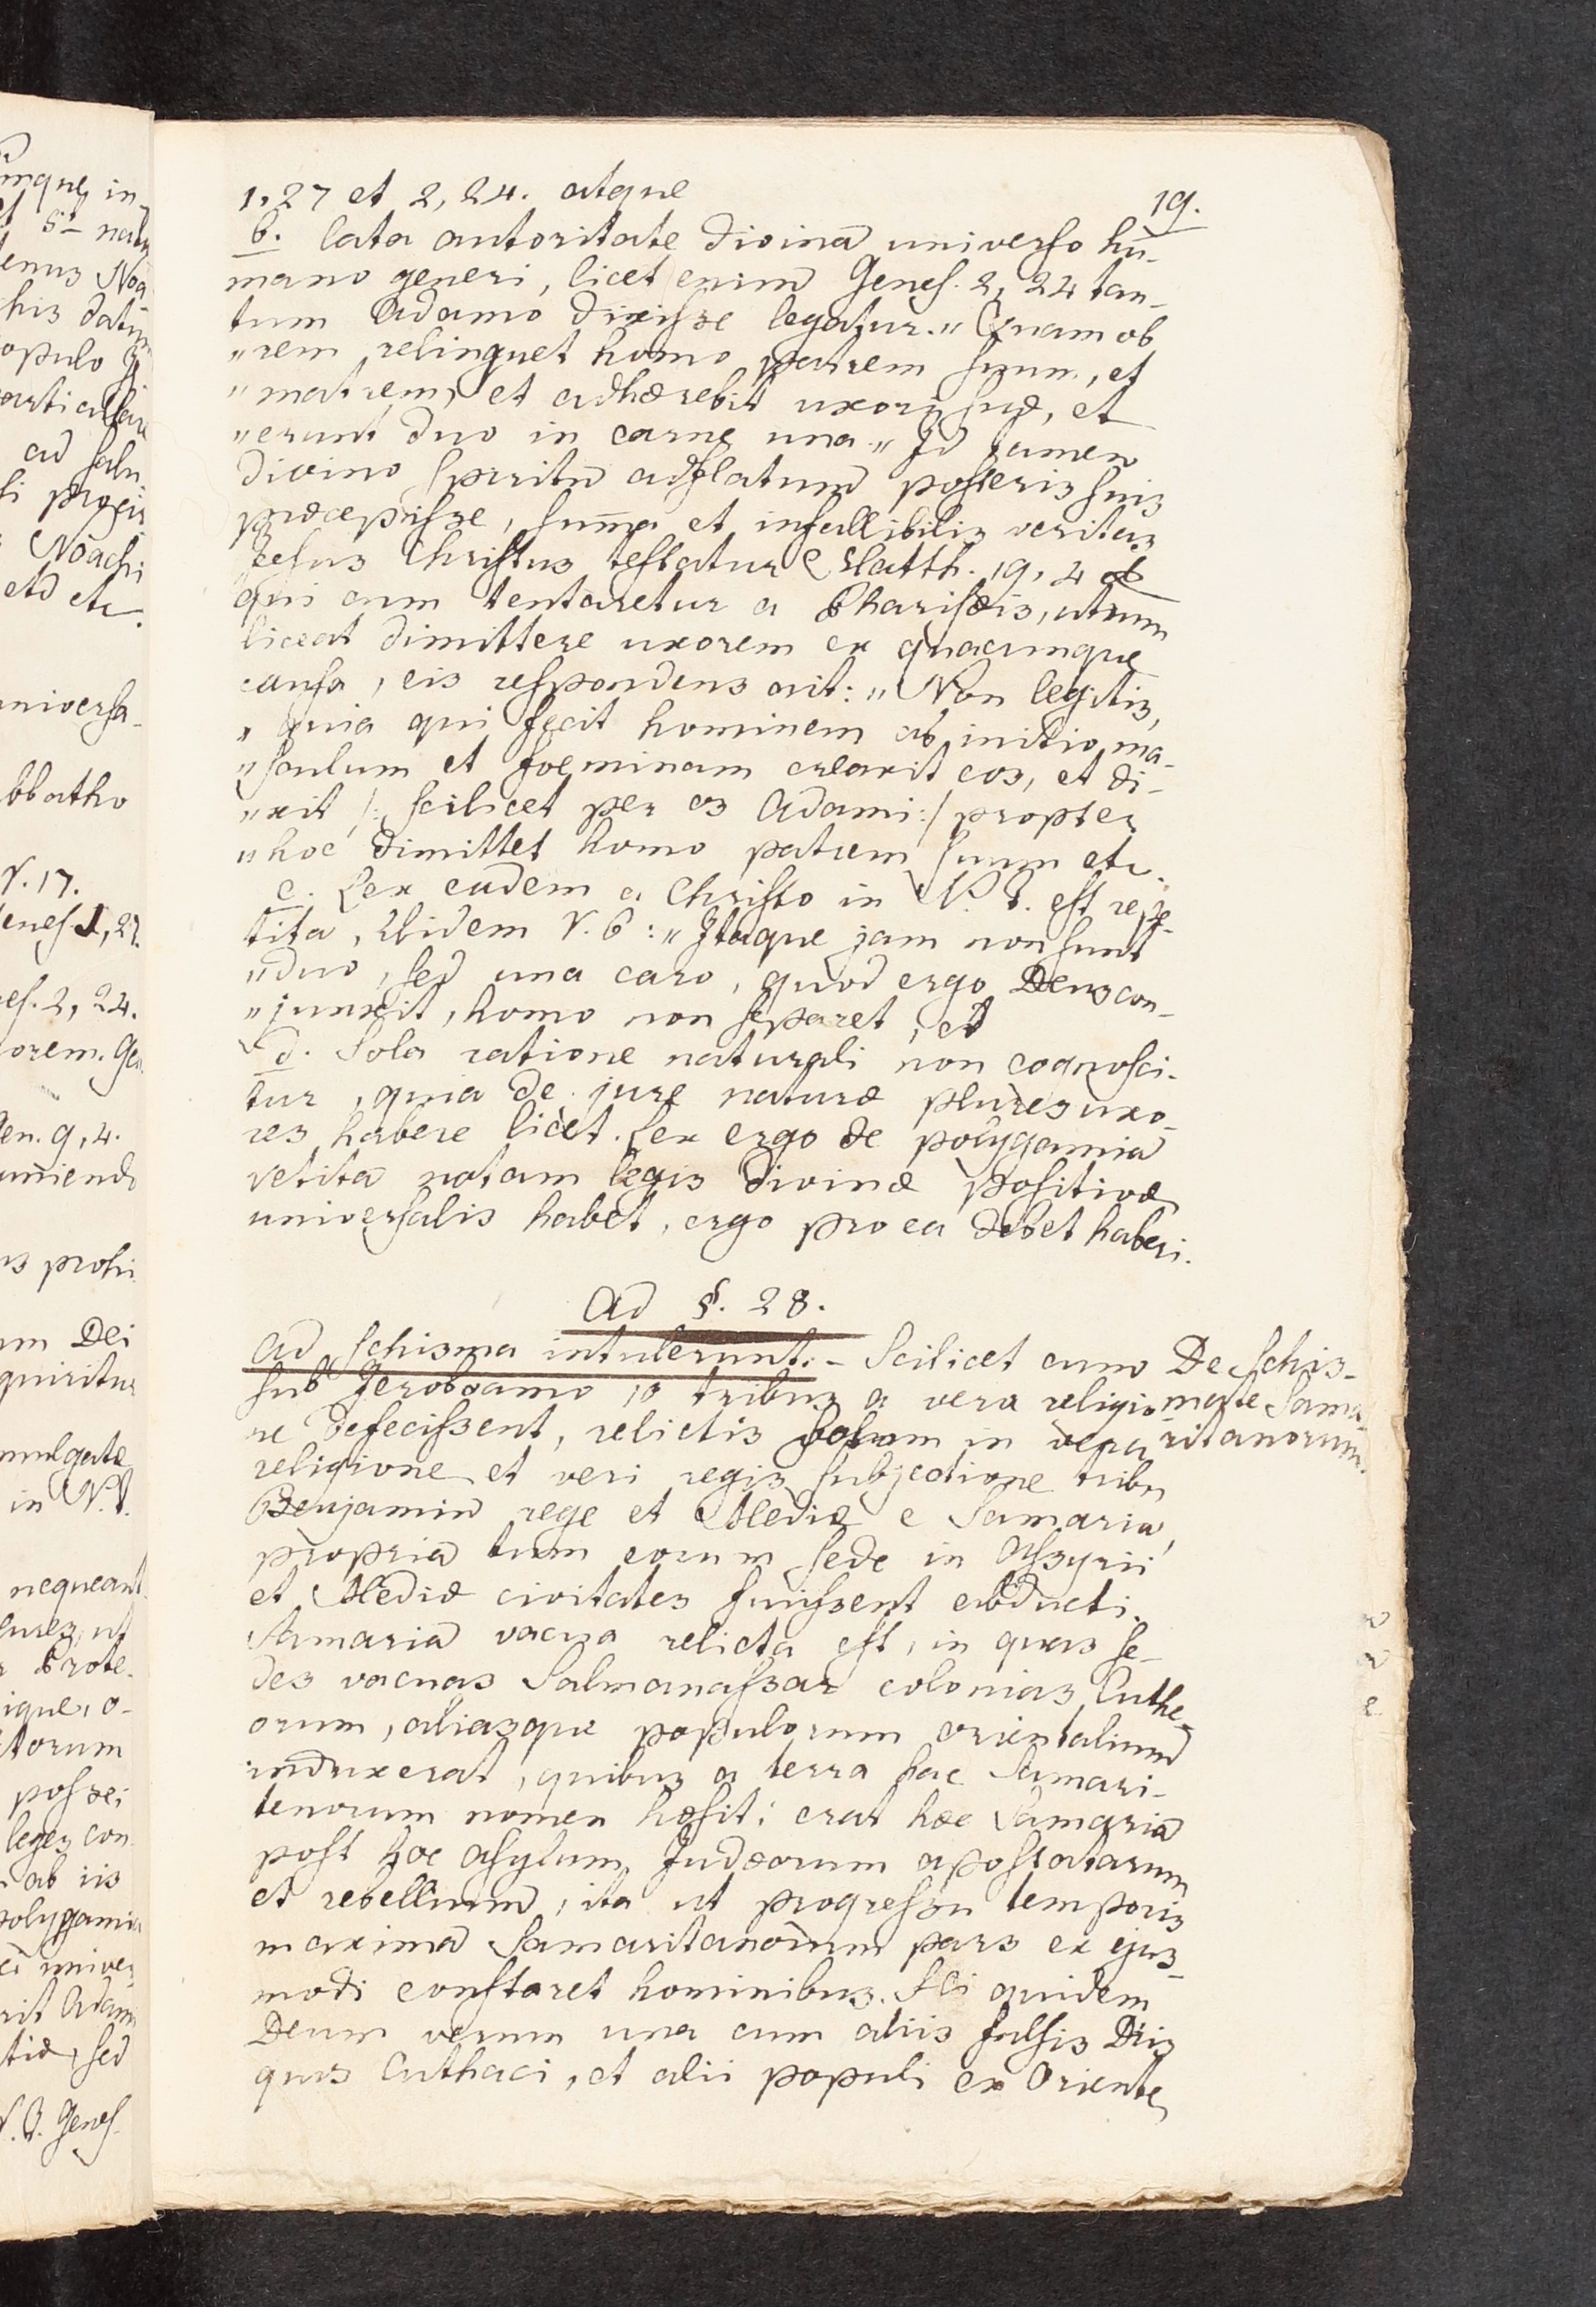 19.
1, 27 et 2, 24. atque
b. lata autoritate divina universo hu-
mano generi, licet enim Genes. 2, 24 tan-
tum Adamo dixisse legatur. „ Quam ob
„ rem relinquet homo patrem suum, et
„ matrem, et adhærebit uxori suæ, et
„ erunt duo in carne una „ Id tamen
divino spiritu adflatum posteris suis
præcepisse, suma et infallibilis veritas
Jesus Christus testatur Matth. 19, 4
qui cum tentaretur a Pharisæis, utrum
liceat dimittere uxorem ex quacunque
causa, eis respondens ait: „ Non legitis,
„ quia qui fecit hominem ab initio ma-
„ sculum et foeminam creavit eos, et di-
„ xit /: scilicet per os Adami :/ propter
„ hoc dimittet homo patrem suum etc.
c. Lex eadem a Christo in N. T. est repe-
tita, Ibidem V. 6: „ Itaque jam non sunt
„ duo, sed una caro, quod ergo Deus con-
„ junxit, homo non separet, et
d. Sola ratione naturali non cognosci-
tur, quia de jure naturæ plures uxo-
res habere licet. Lex ergo de polygamia
vetita notam legis divinæ positivæ
universalis habet, ergo pro ea debet haberi.
Ad §. 28.
Ad schisma intulerunt. - Scilicet cum
sub Jeroboamo 10 tribus a vera religio
ne defecissent, relictis solum in vera
religione et veri regis subjectione tribu
Benjamin rege et Mediæ e Samaria,
propria tum eorum sede in Assyrii
et Mediæ civitates fuissent abducti.
Samaria vacua relicta est, in quas se-
des vacuas Salmanassar colonias Cuthe-
orum, aliasque populorum orientalium
induxerat, quibus a terra hac Samari-
tenorum nomen hæsit: erat hæc Samaria
post hoc asylum Judæorum apostatarum
et rebellium, ita ut progressu temporis
maxima Samaritanorum pars ex ejus-
modi constaret hominibus. Hi quidem
Deum verum una cum aliis falsis Diis
quos Cuthaei, et alii populi ex Oriente
De Schis-
mate Sama-
ritanorum.